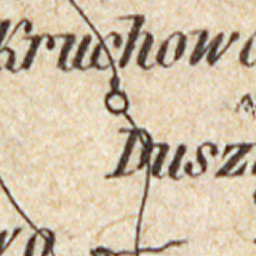 Kruchowo
Dusz
wo